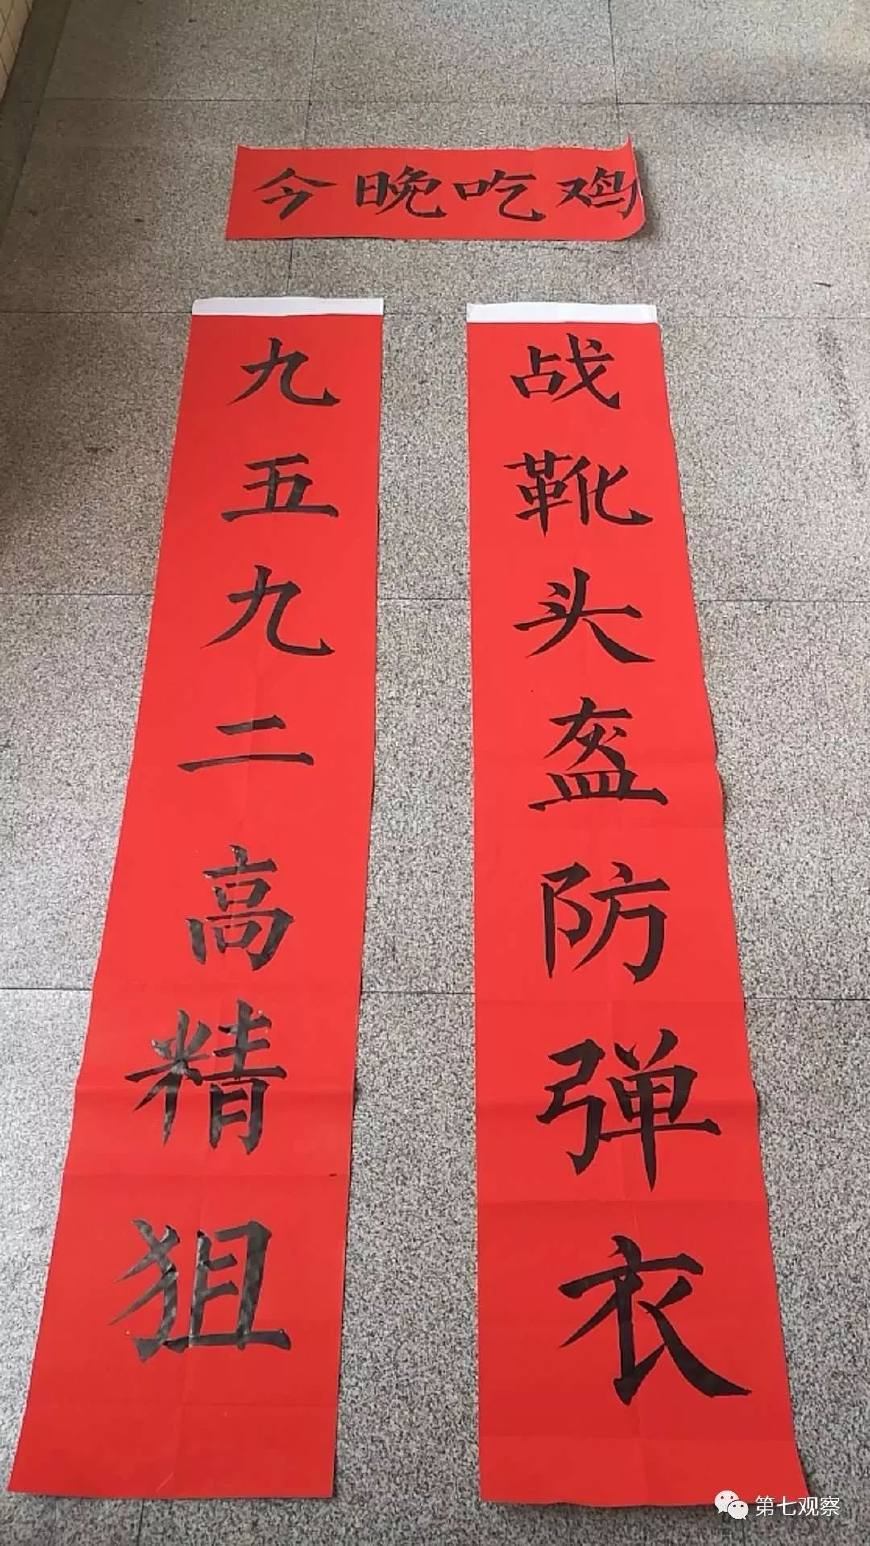 今晚吃鸡
战靴头盔防弹衣
九五九二高精狙
第七观察